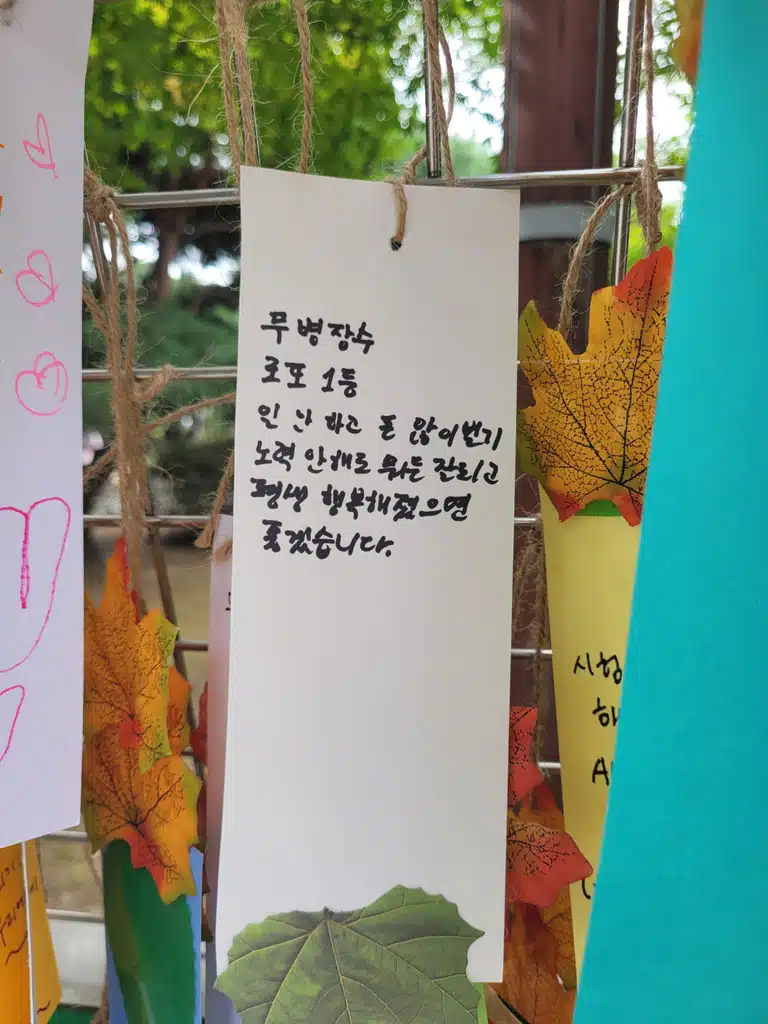 무병장수
로또 1등
인난하고 돈 많이벌기
노력 안해도 뭐든 잘되고
평생 행복해졌으면
좋겠습니다.
시험
해